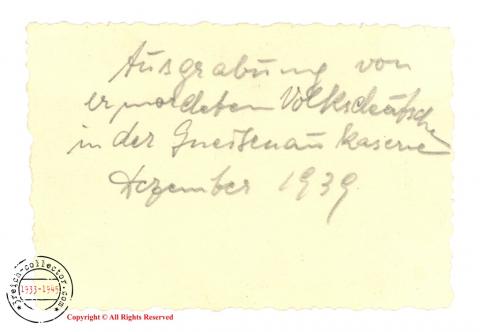 Ausgrabung von
ermordeten Volksdeutsche
in der Gneisenau Kaserne
Dezember 1939
3reich-collector.com
1933-1945
Copyright © All Rights Reserved